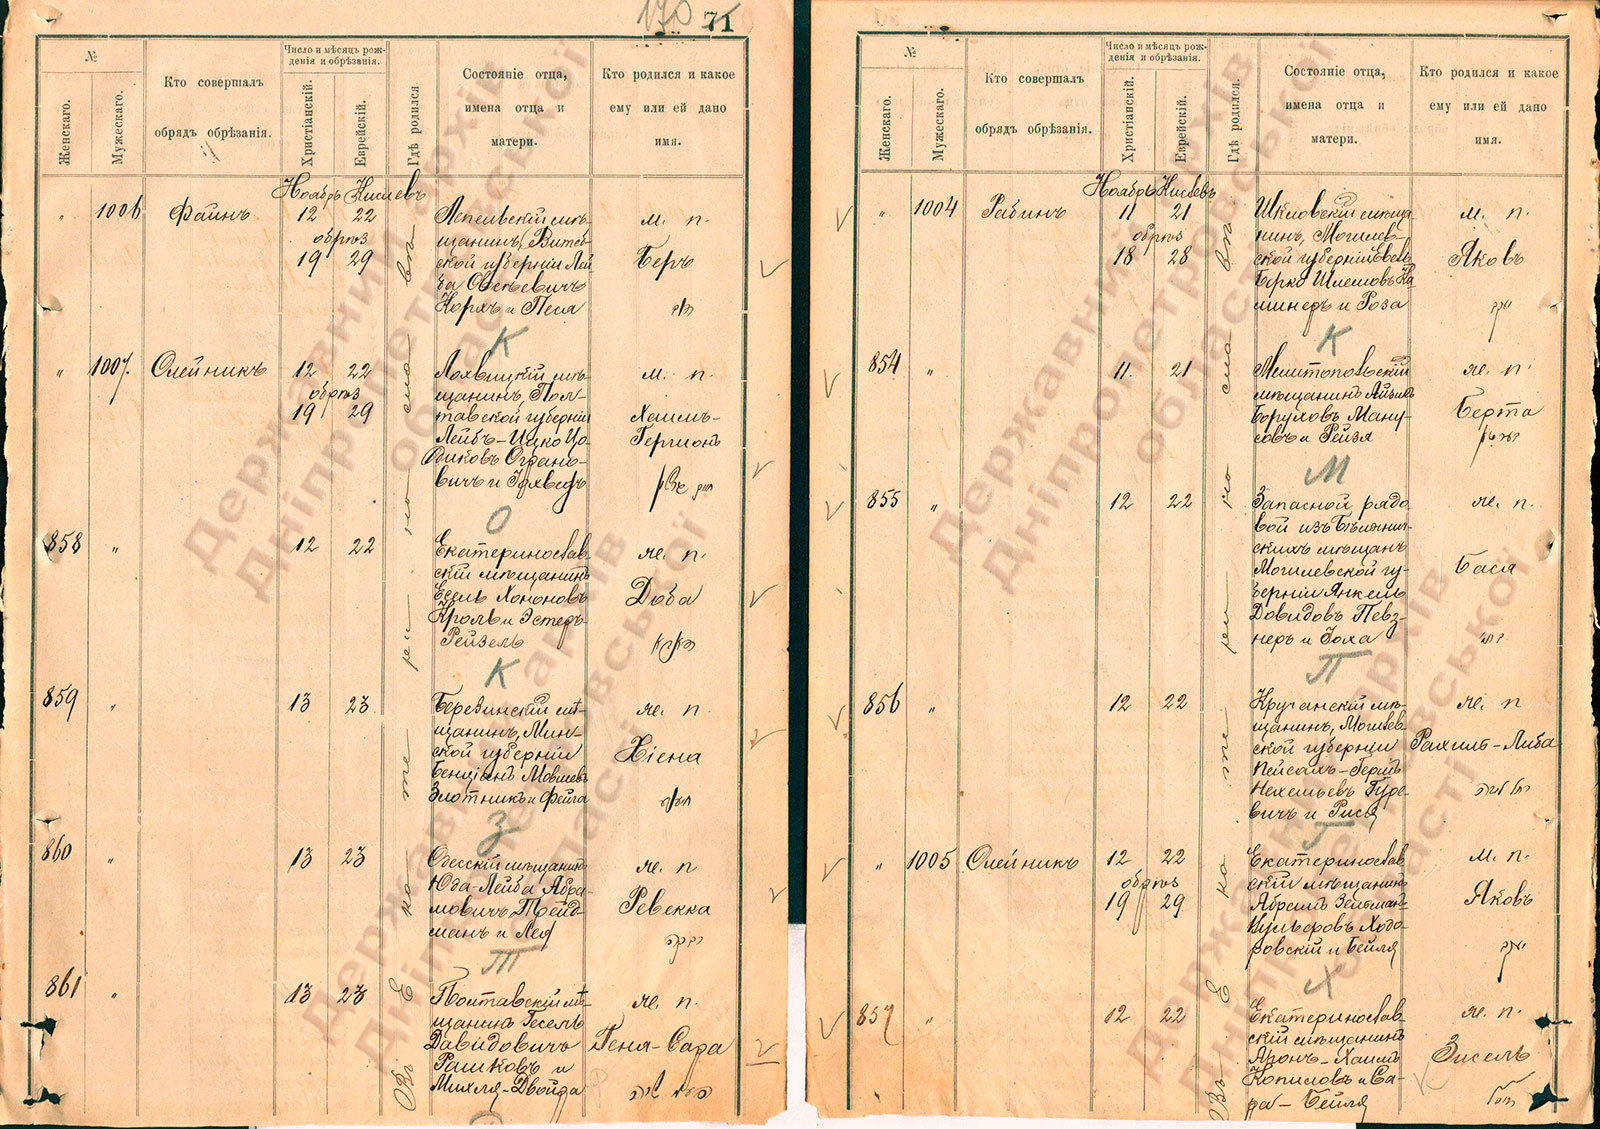 170 71
№
Женскаго.
Мужескаго.
Кто совершалъ
обрядъ обрѣзанія.
Число и мѣсяцъ рож-
денія и обрѣзанія.
Христіанскій.
Еврейскій.
Гдѣ родился
Состояніе отца,
имена отца и
матери.
Кто родился и какое
ему или ей дано
имя.
Ноябрь Кислевъ
Въ Екатеринославѣ
„ 1006 Файнъ 12 22
обрѣз
19 29
Лепельскій мѣ-
щанинъ, Витеб-
ской губерніи Лей
ба Овсѣевичъ
Корхъ и Песя
м. п.
Беръ
К
„ 1007. Олейникъ 12 22
обрѣз
19 29
Лохвицкій мѣ-
щанинъ, Пол-
тавской губерніи
Лейбъ-Ицко Цо-
диковъ Ограно-
вичъ и Гохведъ
м. п.
Хаимъ-
Гершонъ
О
858 „ 12 22
Екатеринослав-
скій мѣщанинъ
Ехиль Хононовъ
Кроль и Эстеръ-
Рейзель
же. п.
Доба
К
859 „ 13 23
Березинскій мѣ-
щанинъ, Мин-
ской губерніи
Бенціанъ Мовшевъ
Злотникъ и Фейга
же. п
Хіена
З
860 „ 13 23
Одесскій мѣщанинъ
Юда-Лейба Абра-
мовичъ Трейд-
манъ и Лея
же. п
Ревекка
Т
861 „ 13 23
Полтавскій мѣ-
щанинъ Гесель
Давидовичъ
Рашковъ и
Михля-Двойра
же. п.
Геня-Сара
№
Женскаго.
Мужескаго.
Кто совершалъ
обрядъ обрѣзанія.
Число и мѣсяцъ рож-
денія и обрѣзанія.
Христіанскій.
Еврейскій.
Гдѣ родился.
Состояніе отца,
имена отца и
матери.
Кто родился и какое
ему или ей дано
имя.
Ноябрь Кислевъ
Въ Екатеринославѣ
„ 1004 Рабинъ 11 21
обрѣз
18 28
Шкловскій мѣща-
нинъ, Могилев-
ской губерніи Евель
Берко Шлемовъ Ка-
минеръ и Роза
м. п.
Яковъ
יעקב
К
854 „ 11. 21
Мелитопольскій
мѣщанинъ Айзикъ
БоруховъМану-
совъ и Рейзя
же. п.
Берта
М
855 „ 12 22
Запасной рядо-
вой изъ
скихъ мѣщанъ
Могилевской гу-
берніи Янкель
Довидовъ Певз-
неръ и Гоха
же. п.
Бася
П
856 „ 12 22
Кручанскій мѣ-
щанинъ, Могилев-
ской губерніи
Пейсахъ-Гершъ
Нехемьевъ Гуре-
вичъ и Рися
же. п
Рахиль-Либа
Г
„ 1005 Олейникъ 12 22
обрѣз
19 29
Екатеринослав
скій мѣщанинъ
Абрамъ Зельман-
Шульфровъ Ходо-
ровскій и Бейля
м. п.
Яковъ
יעקב
Х
857 „ 12 22
Екатеринослав-
скій мѣщанинъ
Аронъ-Хаимъ
Копиловъ и Са-
ра-Бейля
же. п.
Зисель
Державний архів
Дніпропетровської
області